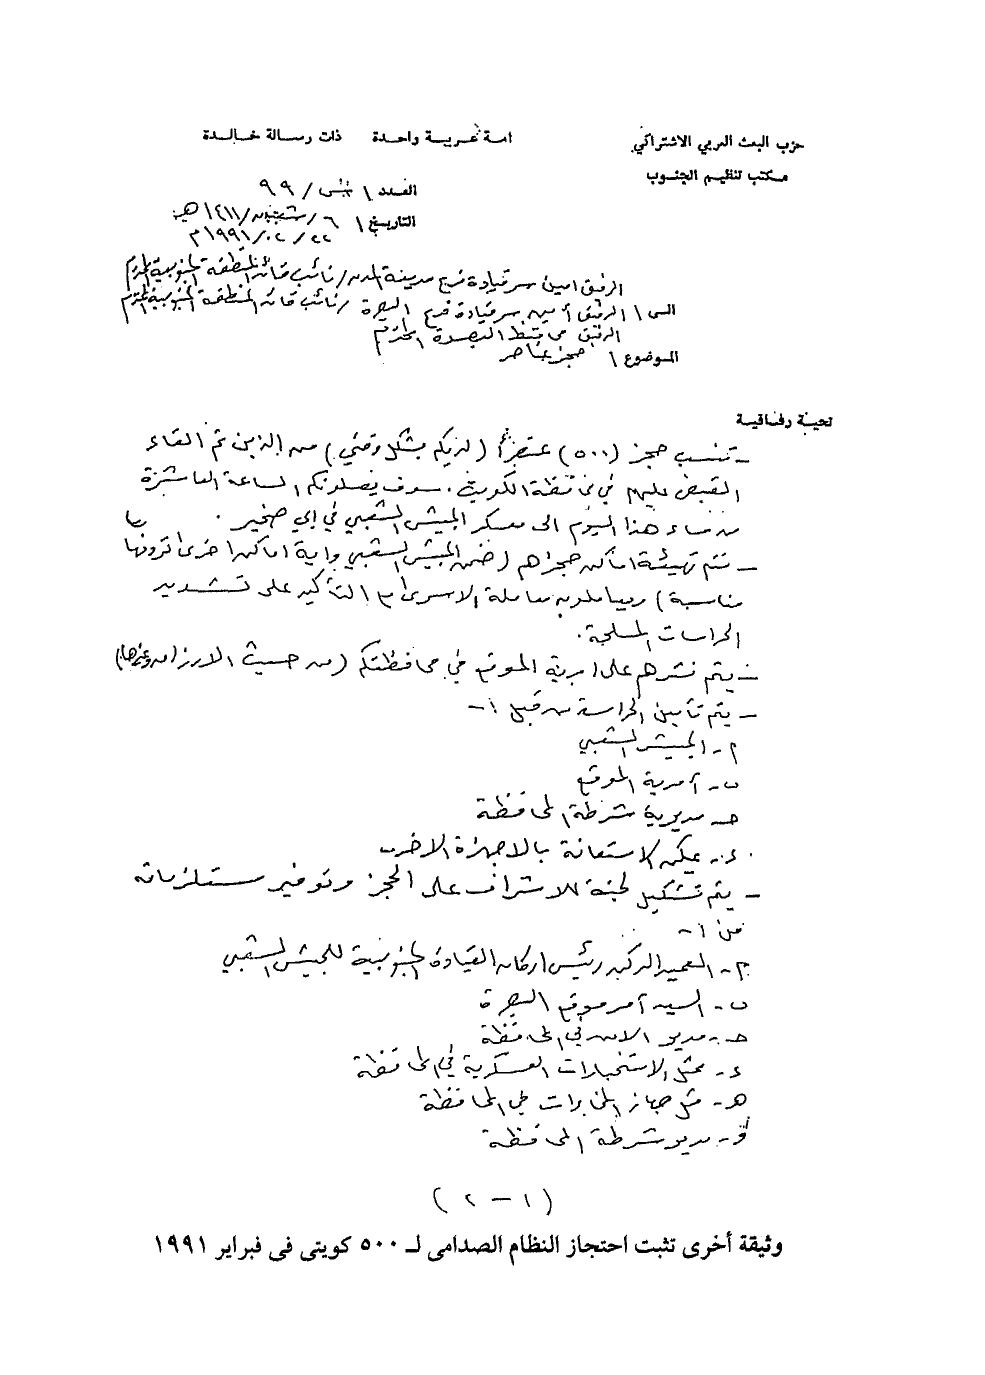 حزب البعث العربي الاشتراكي
مكتب تنظيم الجنوب
امة عربية واحدة ذات رسالة خالدة
العدد / ٩٩ /
التاريخ / ٦ / شعبان / ١٤١١ هـ
٢٢ / ٠٢ / ١٩٩١م
الرفيق امين سر قيادة فرع مدينة المدن / نائب قائد المنطقة الجنوبية المحترم
الى / الرفيق أمين سر قيادة فرع البصرة / نائب قائد المنطقة الجنوبية المحترم
الرفيق محافظ البصرة المحترم
الموضوع / حجز عناصر
تحية رفاقية
- تنسب حجز (٥٠٠) عنصراً (لديكم بشكل وقتي) من الذين تم القاء
القبض عليهم في محافظة الكويت . سوف يصلونكم الساعة العاشرة
من مساء هذا اليوم الى معسكر الجيش الشعبي في ابي صخير .
- تتم تهيئة اماكن حجزهم (ضمن الجيش الشعبي واية اماكن اخرى ترونها
مناسبة) ويعاملون معاملة الاسرى مع التأكيد على تشديد
الحراسات المسلحة .
- يتم نشرهم على امرية الموقع في محافظتكم (من حيث الارزاق وغيرها)
- يتم تأمين الحراسة من قبل :-
أ- الجيش الشعبي
ب- آمرية الموقع
حـ- مديرية شرطة المحافظة
د- يمكن الاستعانة بالاجهزة الاخرى
- يتم تشكيل لجنة للاشراف على الحجز وتوفير مستلزماته
من :-
أ- العميد الركن رئيس اركان القيادة الجنوبية للجيش الشعبي
ب- السيد آمر موقع البصرة
حـ- مدير الامن في المحافظة
د- ممثل الاستخبارات العسكرية في المحافظة
هـ- ممثل جهاز المخابرات في المحافظة
و- مدير شرطة المحافظة
(١ - ٢)
وثيقة أخرى تثبت احتجاز النظام الصدامى لـ ٥٠٠ كويتى فى فبراير ١٩٩١